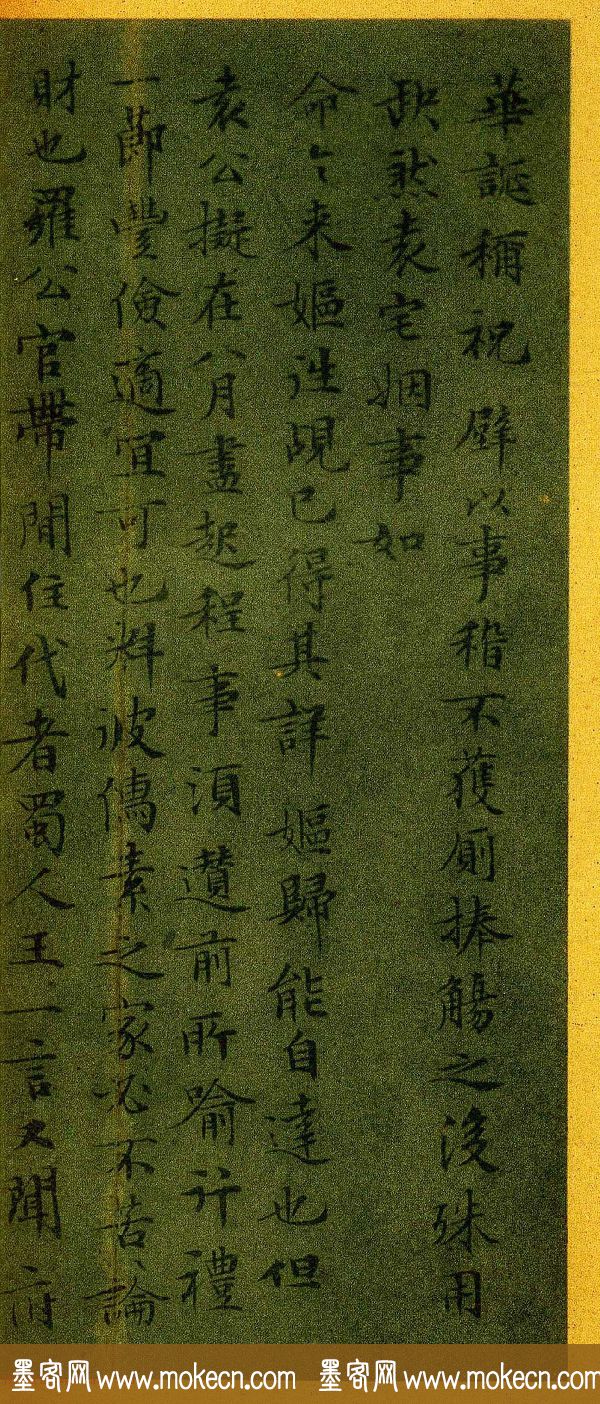 華誕稱祝 壁以事稽不獲廁捧觴之後殊用
缺然袁宅姻事如
命令来嫗詣覘已得其詳嫗歸能自達也但
袁公擬在八月盡起程事須趲前所喻行禮
一節豐儉適宜可也料彼儒素之家必不苦〻論
財也羅公官帶閒住代者蜀人王一言又聞
墨客网 www.mokecn.com 墨客网 www.mokecn.com